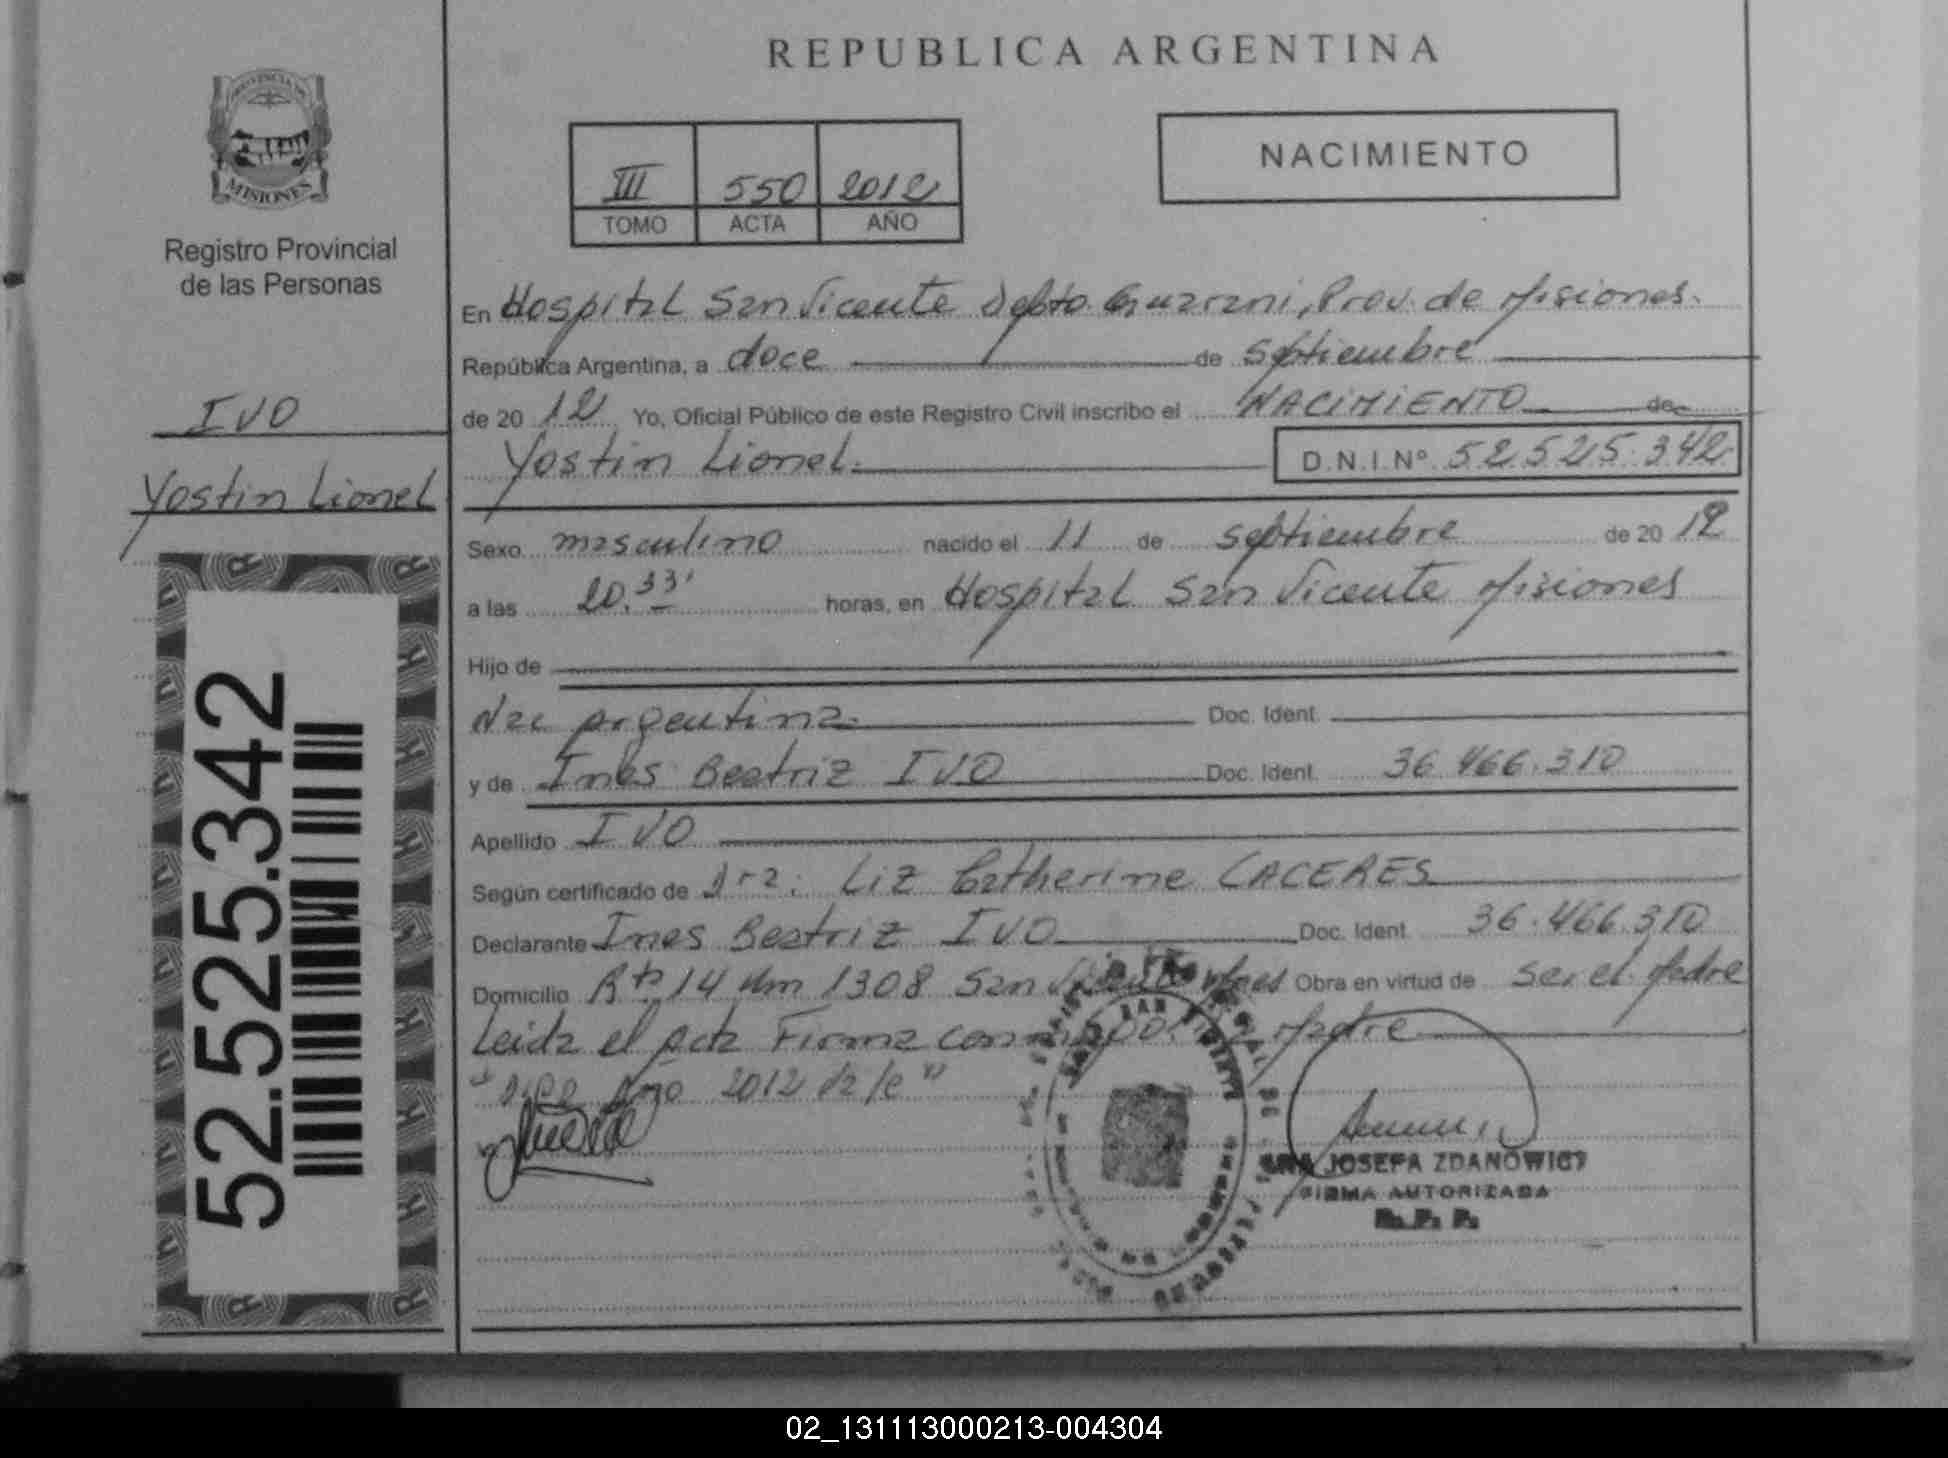 REPUBLICA ARGENTINA
PROVINCIA DE
MISIONES
Registro Provincial
de las Personas
III 550 2012
TOMO ACTA AÑO
NACIMIENTO
IVO
Yostin Lionel
52.525.342
En Hospital San Vicente Depto. Guarani, Prov. de Misiones.
República Argentina, a doce de Septiembre
de 20 12 Yo, Oficial Público de este Registro Civil inscribo el NACIMIENTO de
Yostin Lionel. D.N.I.Nº 52.525.342
Sexo masculino nacido el 11 de septiembre de 20 12
a las 20.33' horas, en Hospital San Vicente Misiones
Hijo de
Nac Argentina Doc. Ident.
y de Ines Beatriz IVO Doc. Ident. 36.466.310
Apellido IVO
Según certificado de Dra: Liz Catherine CACERES
Declarante Ines Beatriz IVO Doc. Ident. 36.466.310
Domicilio Rta 14 Km 1308 San Vicente Mnes Obra en virtud de ser el Madre
Leida el Acta Firma conmigo Madre
Año 2012
JOSEFA ZDANOWICZ
FIRMA AUTORIZADA
R. P. P.
02_131113000213-004304